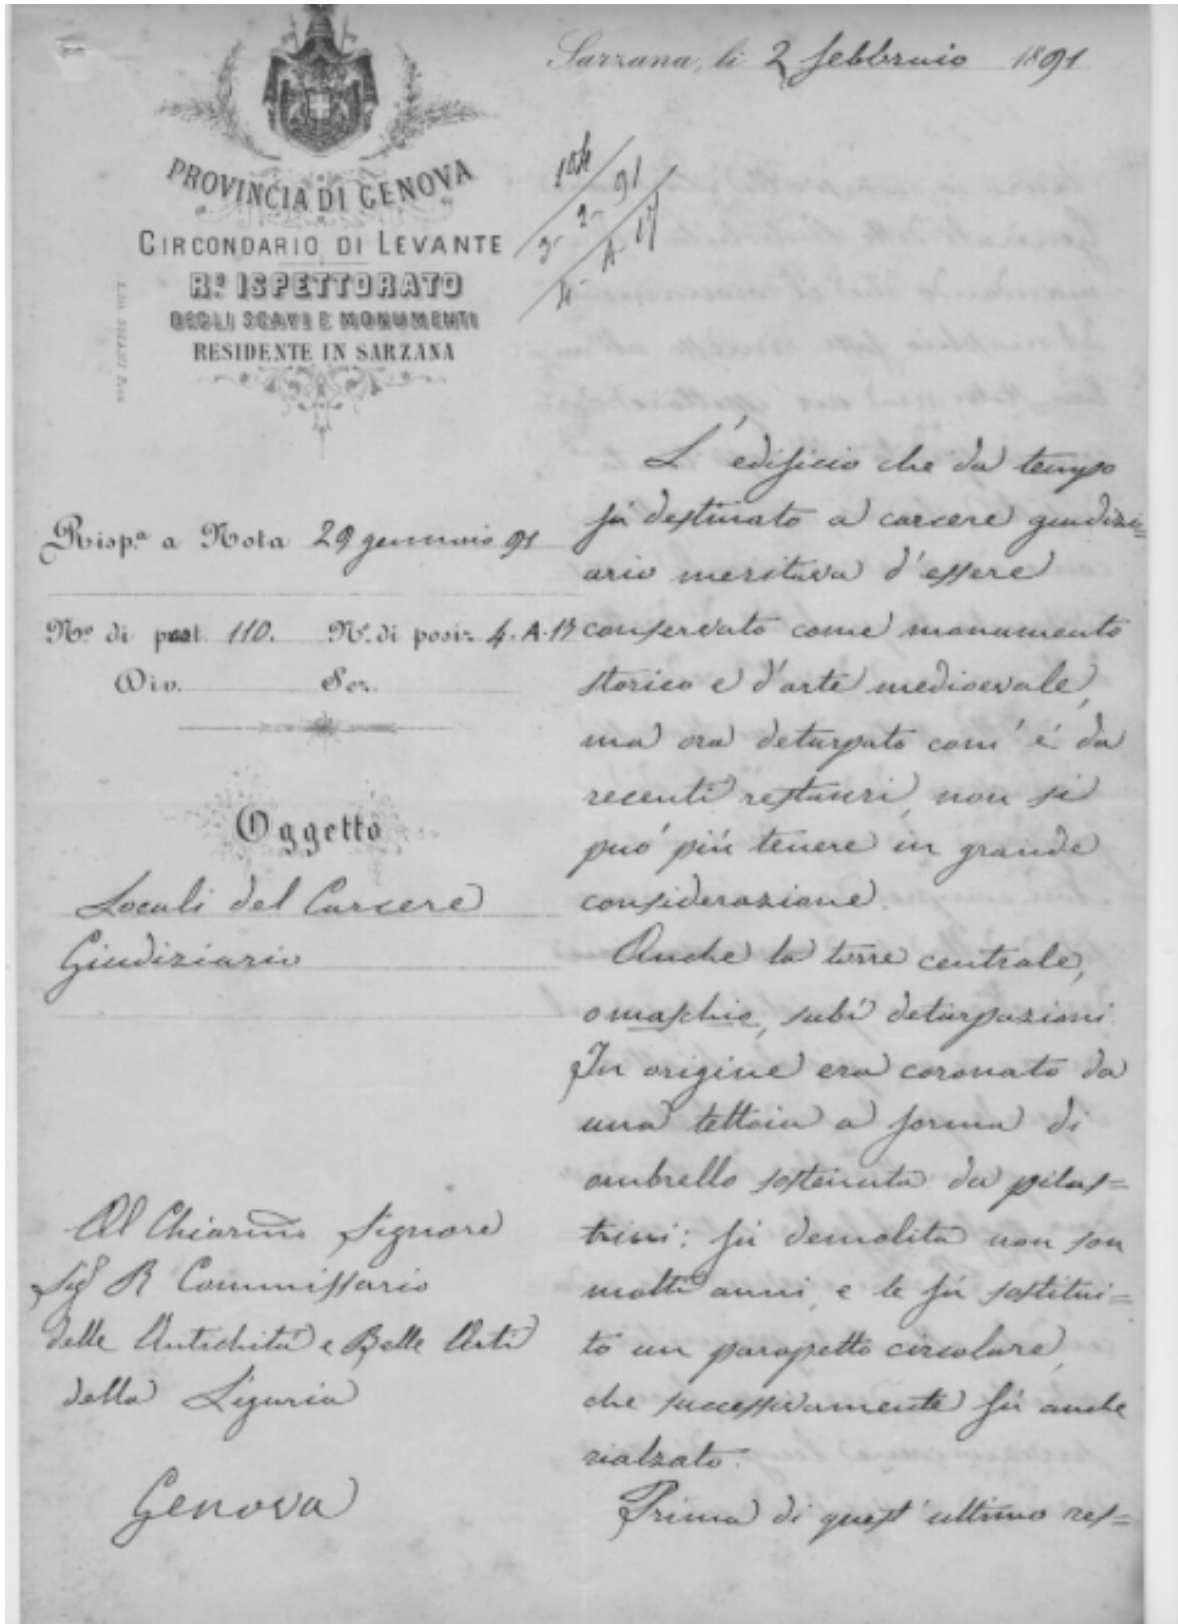 Sarzana, li 2 febbraio 1891
PROVINCIA DI GENOVA
CIRCONDARIO DI LEVANTE
R.º ISPETTORATO
DEGLI SCAVI E MONUMENTI
RESIDENTE IN SARZANA
3- 2- 91
4- A- 17
Risp.ª a Nota 29 gennaio 91
Nº di prot. 110. Nº di posiz. 4. A. 17
Div. Sez.
Oggetto
Locali del Carcere
Giudiziario
Al Chiarmo Signore
Sigr R Commissario
delle Antichità e Belle Arti
della Liguria
Genova
L'edificio che da tempo
fù destinato a carcere giudizi=
ario meritava d'essere
conservato come monumento
storico e d'arte medioevale,
ma ora deturpato com'è da
recenti restauri, non si
può più tenere in grande
considerazione.
Anche la torre centrale,
o maschio, subì deturpazioni.
In origine era coronato da
una tettoia a forma di
ombrello sostenuta da pilas=
trini: fù demolita non son
molti anni, e le fù sostitui=
to un parapetto circolare,
che successivamente fù anche
rialzato.
Prima di quest'ultimo res=